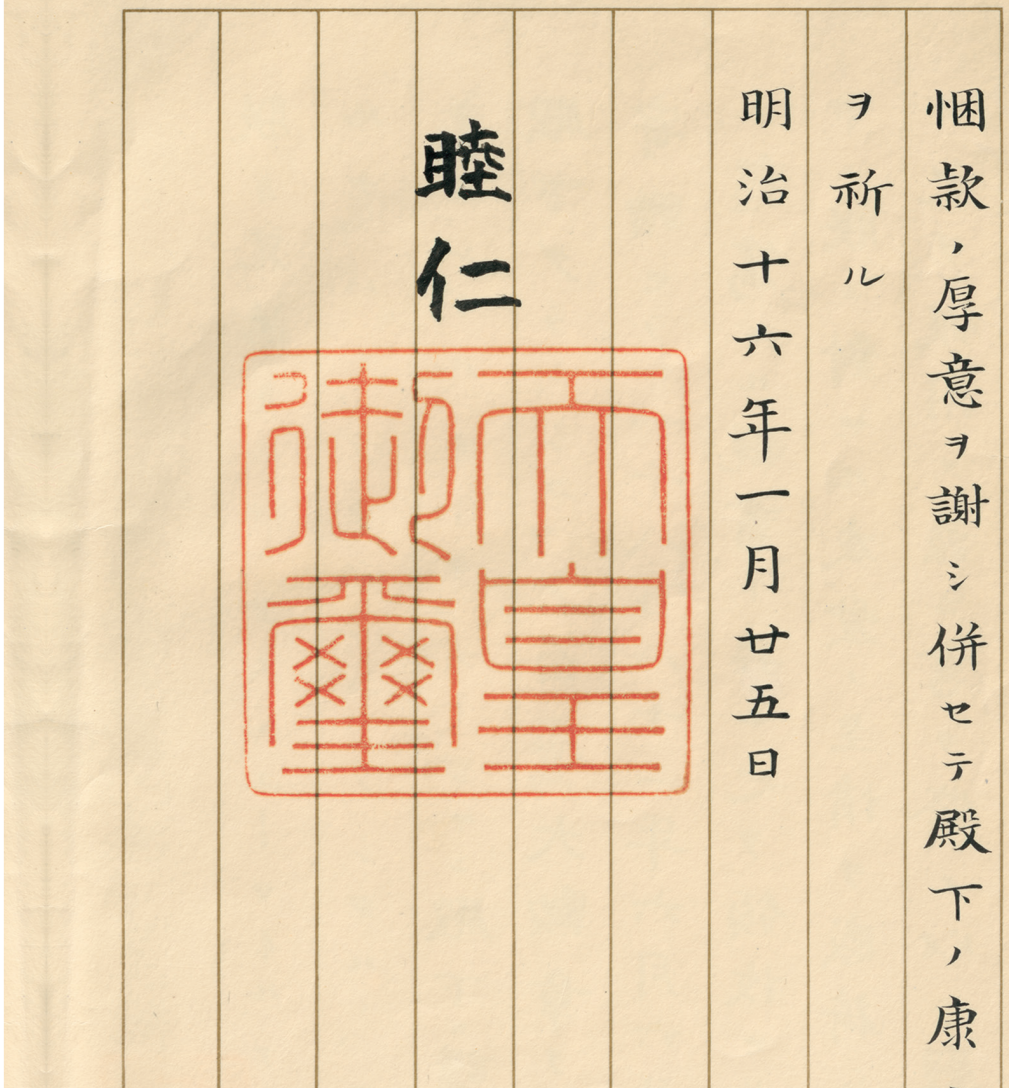 悃款ノ厚意ヲ謝シ併セテ殿下ノ康
ヲ祈ル
明治十六年一月廿五日
睦仁
天皇
御璽